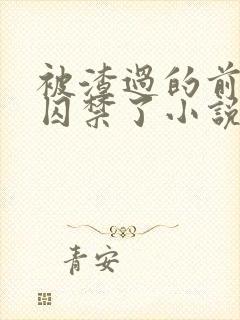 被渣過的前
囚禁了小說
青安